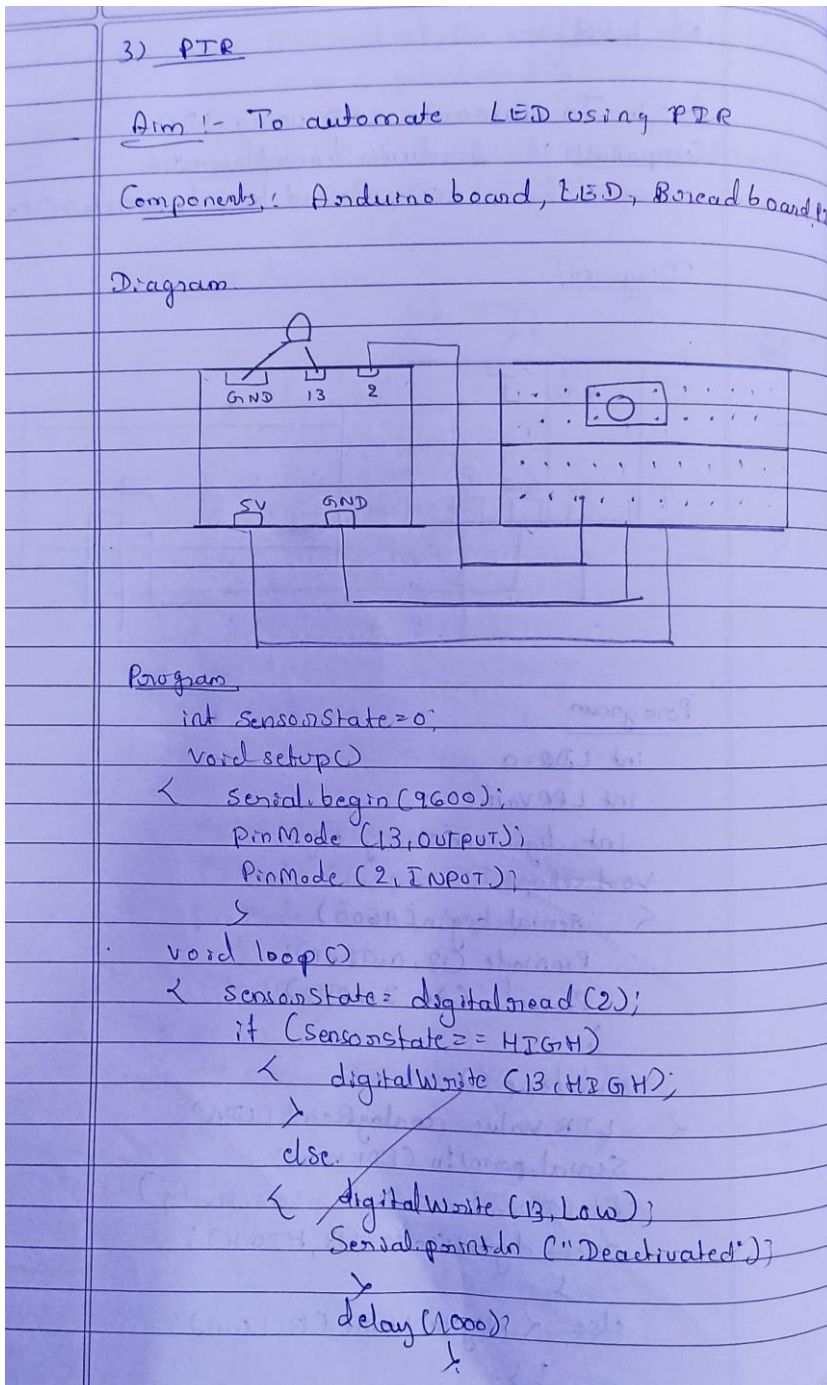 3) PIR
Aim :- To automate LED using PIR
Components : Arduino board, LED, Breadboard,
Diagram
GND 13 2
5V GND
Program
int sensorState=0;
void setup()
{ serial.begin(9600);
pinMode (13, OUTPUT);
PinMode (2, INPUT);
}
void loop()
{ sensorState= digitalread (2);
if (sensorstate== HIGH)
{ digitalWrite (13, HIGH);
}
else.
{ digitalWrite (13, Low);
Serial.println ("Deactivated");
}
delay(1000);
}